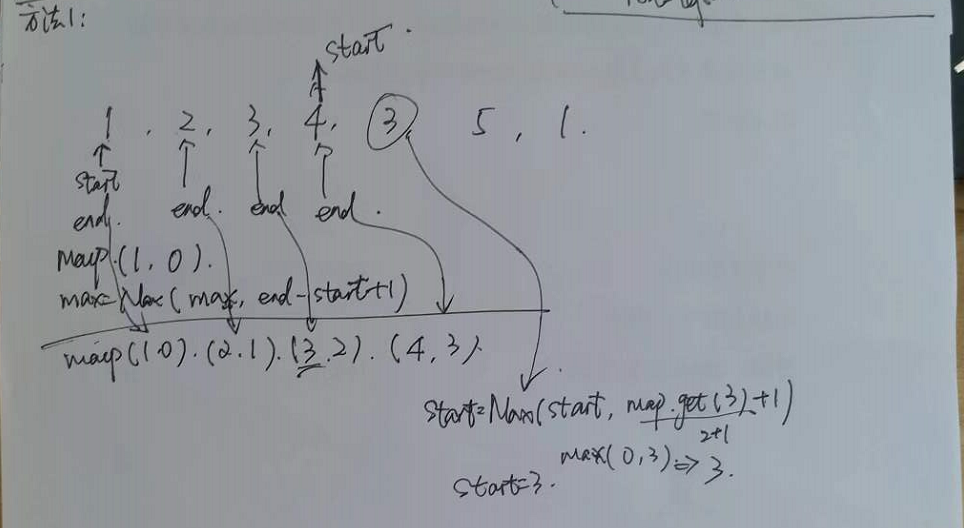 方法1:
start.
1, 2, 3, 4, 3, 5, 1.
start
end. end. end end.
map.(1,0).
max=Max(max, end-start+1)
map(1.0).(2.1).(3.2).(4,3).
start=Max(start, map.get(3)+1)
2+1
max(0,3)=>3.
start=3.